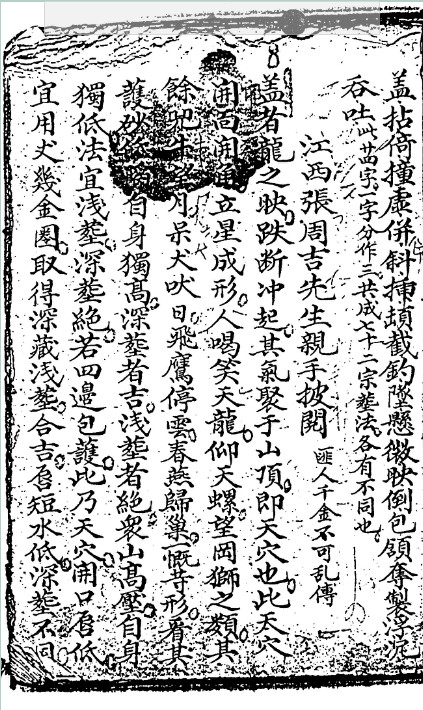 盖拈倚撞虗併斜揷頭截釣墜懸微映倒包領奪製浮沉
吞吐此廿四字一字分作三共成七十二宗塟法各有不同也
江西張周吉先生親手披閱 匪人千金不可乱傳
盖者龍之映跌断冲起其氣聚于山頂即天穴也此天穴
開立星成形人喝笑天龍仰天螺望岡獅之類其
餘月呆犬吠日飛鷹停雲春燕歸巢慨等形看其
護砂自身獨高深塟者吉浅塟者絶衆山高壓自身
獨低法宜浅塟深塟絶若四邊包護此乃天穴開口唇低
宜用犬幾金圏取得深藏浅塟合吉唇短水低深塟不同